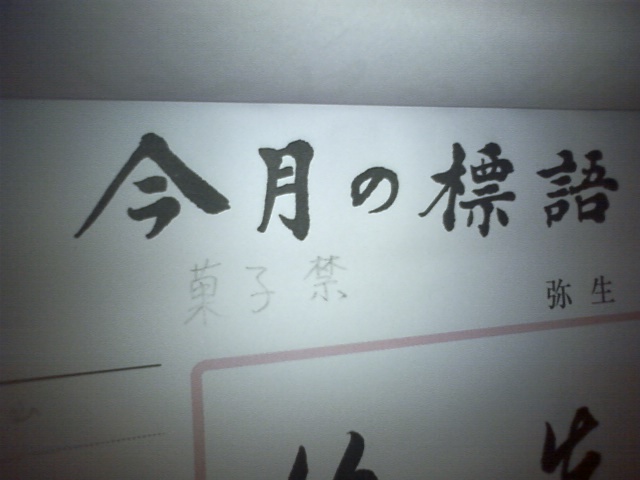 今月の標語
菓子禁
弥生